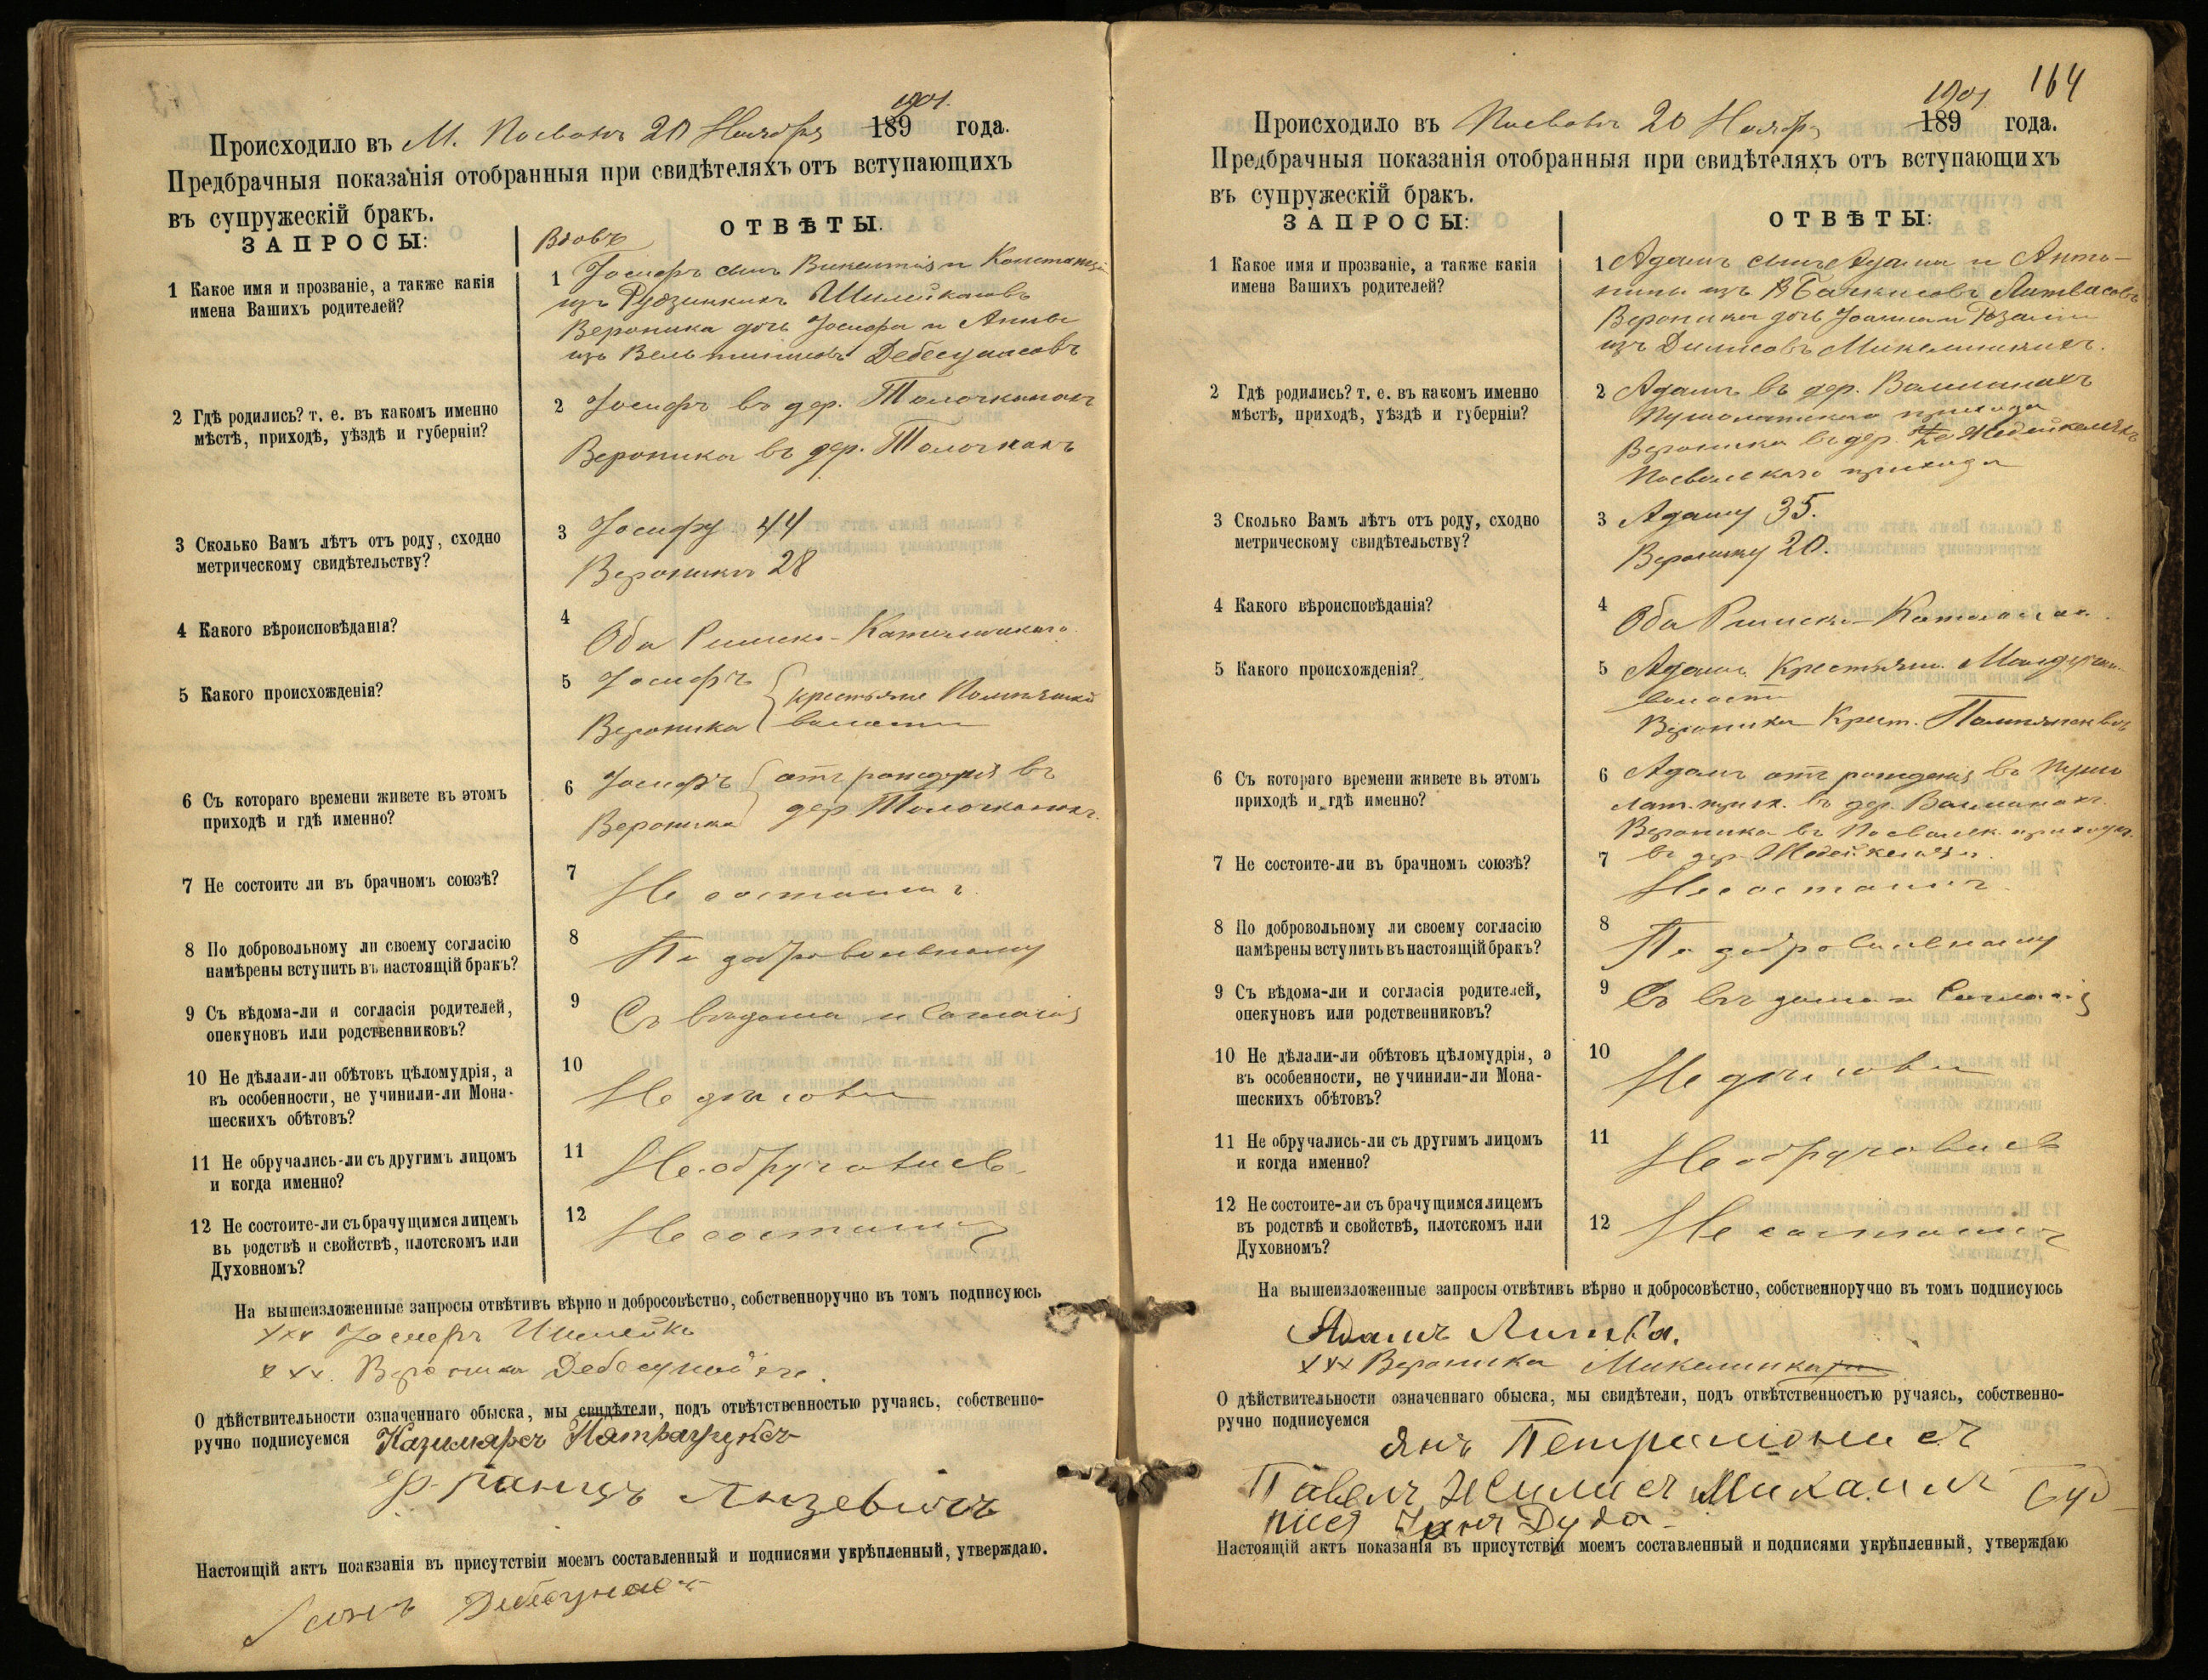 Происходило въ М. Посволь 20 Ноября 189 1901. года.
Предбрачныя показанія отобранныя при свидѣтеляхъ отъ вступающихъ
въ супружескій бракъ.
ЗАПРОСЫ:
ОТВѢТЫ.
Вдовъ
1 Какое имя и прозваніе, а также какія
имена Вашихъ родителей?
1 Іосифъ сынъ Викентія и Констанціи
изъ Шилейкисовъ
Вероника дочь Іосифа и Анны
изъ Дебесунасовъ
2 Гдѣ родились? т. е. въ какомъ именно
мѣстѣ, приходѣ, уѣздѣ и губерніи?
2 Іосифъ въ дер. Толочканахъ
Вероника въ дер. Толочканахъ
3 Сколько Вамъ лѣтъ отъ роду, сходно
метрическому свидѣтельству?
3 Іосифу 44
Вероникѣ 28
4 Какого вѣроисповѣданія?
4 Оба Римско-Католическаго
5 Какого происхожденія?
5 Іосифъ
Вероника крестьяне волости
6 Съ котораго времени живете въ этомъ
приходѣ и гдѣ именно?
6 Іосифъ отъ рожденія въ
Вероника дер. Толочканахъ.
7 Не состоите ли въ брачномъ союзѣ?
7 Не состоимъ.
8 По добровольному ли своему согласію
намѣрены вступить въ настоящій бракъ?
8 По добровольному
9 Съ вѣдома-ли и согласія родителей,
опекуновъ или родственниковъ?
9 Съ вѣдома и согласія
10 Не дѣлали-ли обѣтовъ цѣломудрія, а
въ особенности, не учинили-ли Мона-
шескихъ обѣтовъ?
10 Не дѣлали
11 Не обручались-ли съ другимъ лицомъ
и когда именно?
11 Не обручались
12 Не состоите-ли съ брачущимся лицемъ
въ родствѣ и свойствѣ, плотскомъ или
Духовномъ?
12 Не состоимъ
На вышеизложенные запросы отвѣтивъ вѣрно и добросовѣстно, собственноручно въ томъ подписуюсь
xxx Іосифъ Шилейка
xxx. Вероника
О дѣйствительности означеннаго обыска, мы свидѣтели, подъ отвѣтственностью ручаясь, собственно-
ручно подписуемся Казимяръ
Францъ
Настоящій актъ поаказанія въ присутствіи моемъ составленный и подписями укрѣпленный, утверждаю.
164
Происходило въ Посволь 20 Ноября 189 1901 года.
Предбрачныя показанія отобранныя при свидѣтеляхъ отъ вступающихъ
въ супружескій бракъ.
ЗАПРОСЫ:
ОТВѢТЫ:
1 Какое имя и прозваніе, а также какія
имена Вашихъ родителей?
1 Адамъ сынъ Адама и Анто-
нины изъ Литвасовъ
Вероника дочь Іоанна и Розаліи
изъ Микелинскихъ.
2 Гдѣ родились? т. е. въ какомъ именно
мѣстѣ, приходѣ, уѣздѣ и губерніи?
2 Адамъ въ дер.
Пушолатскаго прихода
Вероника въ дер.
Посвольскаго прихода
3 Сколько Вамъ лѣтъ отъ роду, сходно
метрическому свидѣтельству?
3 Адаму 35.
Веронику 20.
4 Какого вѣроисповѣданія?
4 Оба Римско-Католическаго
5 Какого происхожденія?
5 Адамъ крестьян.
волости
Вероника Крест.
6 Съ котораго времени живете въ этомъ
приходѣ и гдѣ именно?
6 Адамъ отъ рожденія въ Пушо
лат. прих. въ дер.
Вероника въ Посвольск. приходѣ
7 Не состоите-ли въ брачномъ союзѣ?
7 въ дер.
Не состоимъ.
8 По добровольному ли своему согласію
намѣрены вступить въ настоящій бракъ?
8 По добровольному
9 Съ вѣдома-ли и согласія родителей,
опекуновъ или родственниковъ?
9 Съ вѣдома и согласія
10 Не дѣлали-ли обѣтовъ цѣломудрія, а
въ особенности, не учинили-ли Мона-
шескихъ обѣтовъ?
10 Не дѣлали
11 Не обручались-ли съ другимъ лицомъ
и когда именно?
11 Не обручались
12 Не состоите-ли съ брачущимся лицемъ
въ родствѣ и свойствѣ, плотскомъ или
Духовномъ?
12 Не состоимъ
На вышеизложенные запросы отвѣтивъ вѣрно и добросовѣстно, собственноручно въ томъ подписуюсь
Адамъ Литва.
xxx Вероника
О дѣйствительности означеннаго обыска, мы свидѣтели, подъ отвѣтственностью ручаясь, собственно-
ручно подписуемся
Янъ Петрамонисъ
Павелъ Жилисъ Михаилъ
Дуда
Настоящій актъ показанія въ присутствіи моемъ составленный и подписями укрѣпленный, утверждаю